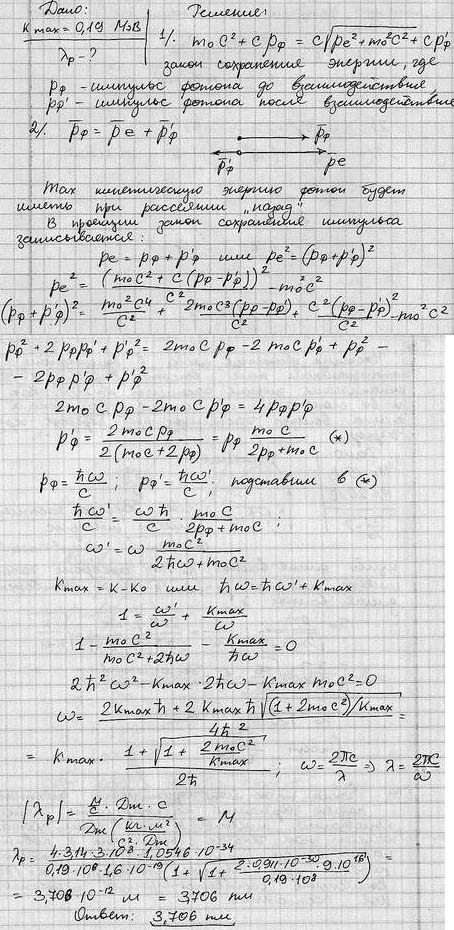 Дано:
Kmax = 0,19 МэВ
λp - ?
Решение:
1/. m₀c² + c pф = c√(pe² + m₀²c²) + c p'ф
закон сохранения энергии, где
pф - импульс фотона до взаимодействия,
pф' - импульс фотона после взаимодействия
2/. p̄ф = p̄e + p̄'ф
p̄ф
p̄'ф pe
Max кинетическую энергию фотон будет
иметь при рассеянии "назад"
В проекции закон сохранения импульса
записывается:
pe = pф + p'ф или pe² = (pф + p'ф)²
pe² = (m₀c² + c(pф - p'ф))²/c² - m₀²c²
(pф + p'ф)² = m₀²c⁴/c² + 2m₀c³(pф - pф')/c² + c²(pф - pф')²/c² - m₀²c²
pф² + 2pфpф' + p'ф² = 2m₀c pф - 2m₀c p'ф + pф² -
- 2pф p'ф + p'ф²
2m₀c pф - 2m₀c p'ф = 4pф p'ф
p'ф = 2m₀c pф / 2(m₀c + 2pф) = pф m₀c / 2pф + m₀c (*)
pф = ħω/c ; pф' = ħω'/c ; подставим в (*)
ħω'/c = ωħ/c · m₀c / 2pф + m₀c ;
ω' = ω m₀c² / 2ħω + m₀c²
Kmax = K - K₀ или ħω = ħω' + Kmax
1 = ω'/ω + Kmax/ω
1 - m₀c² / m₀c² + 2ħω - Kmax/ħω = 0
2ħ²ω² - Kmax · 2ħω - Kmax m₀c² = 0
ω = 2Kmax ħ + 2Kmax ħ √((1 + 2m₀c²)/Kmax) / 4ħ² =
= Kmax · 1 + √(1 + 2m₀c²/Kmax) / 2ħ ; ω = 2πc/λ => λ = 2πc/ω
|λp| = м/с · Дж · с / Дж (кг · м² / с² · Дж) = м
λp = 4·3,14·3·10⁸·1,0546·10⁻³⁴ / 0,19·10⁶·1,6·10⁻¹⁹(1 + √(1 + 2·0,911·10⁻³⁰·9·10¹⁶ / 0,19·10⁸)) =
= 3,706·10⁻¹² м = 3,706 пм
Ответ: 3,706 пм